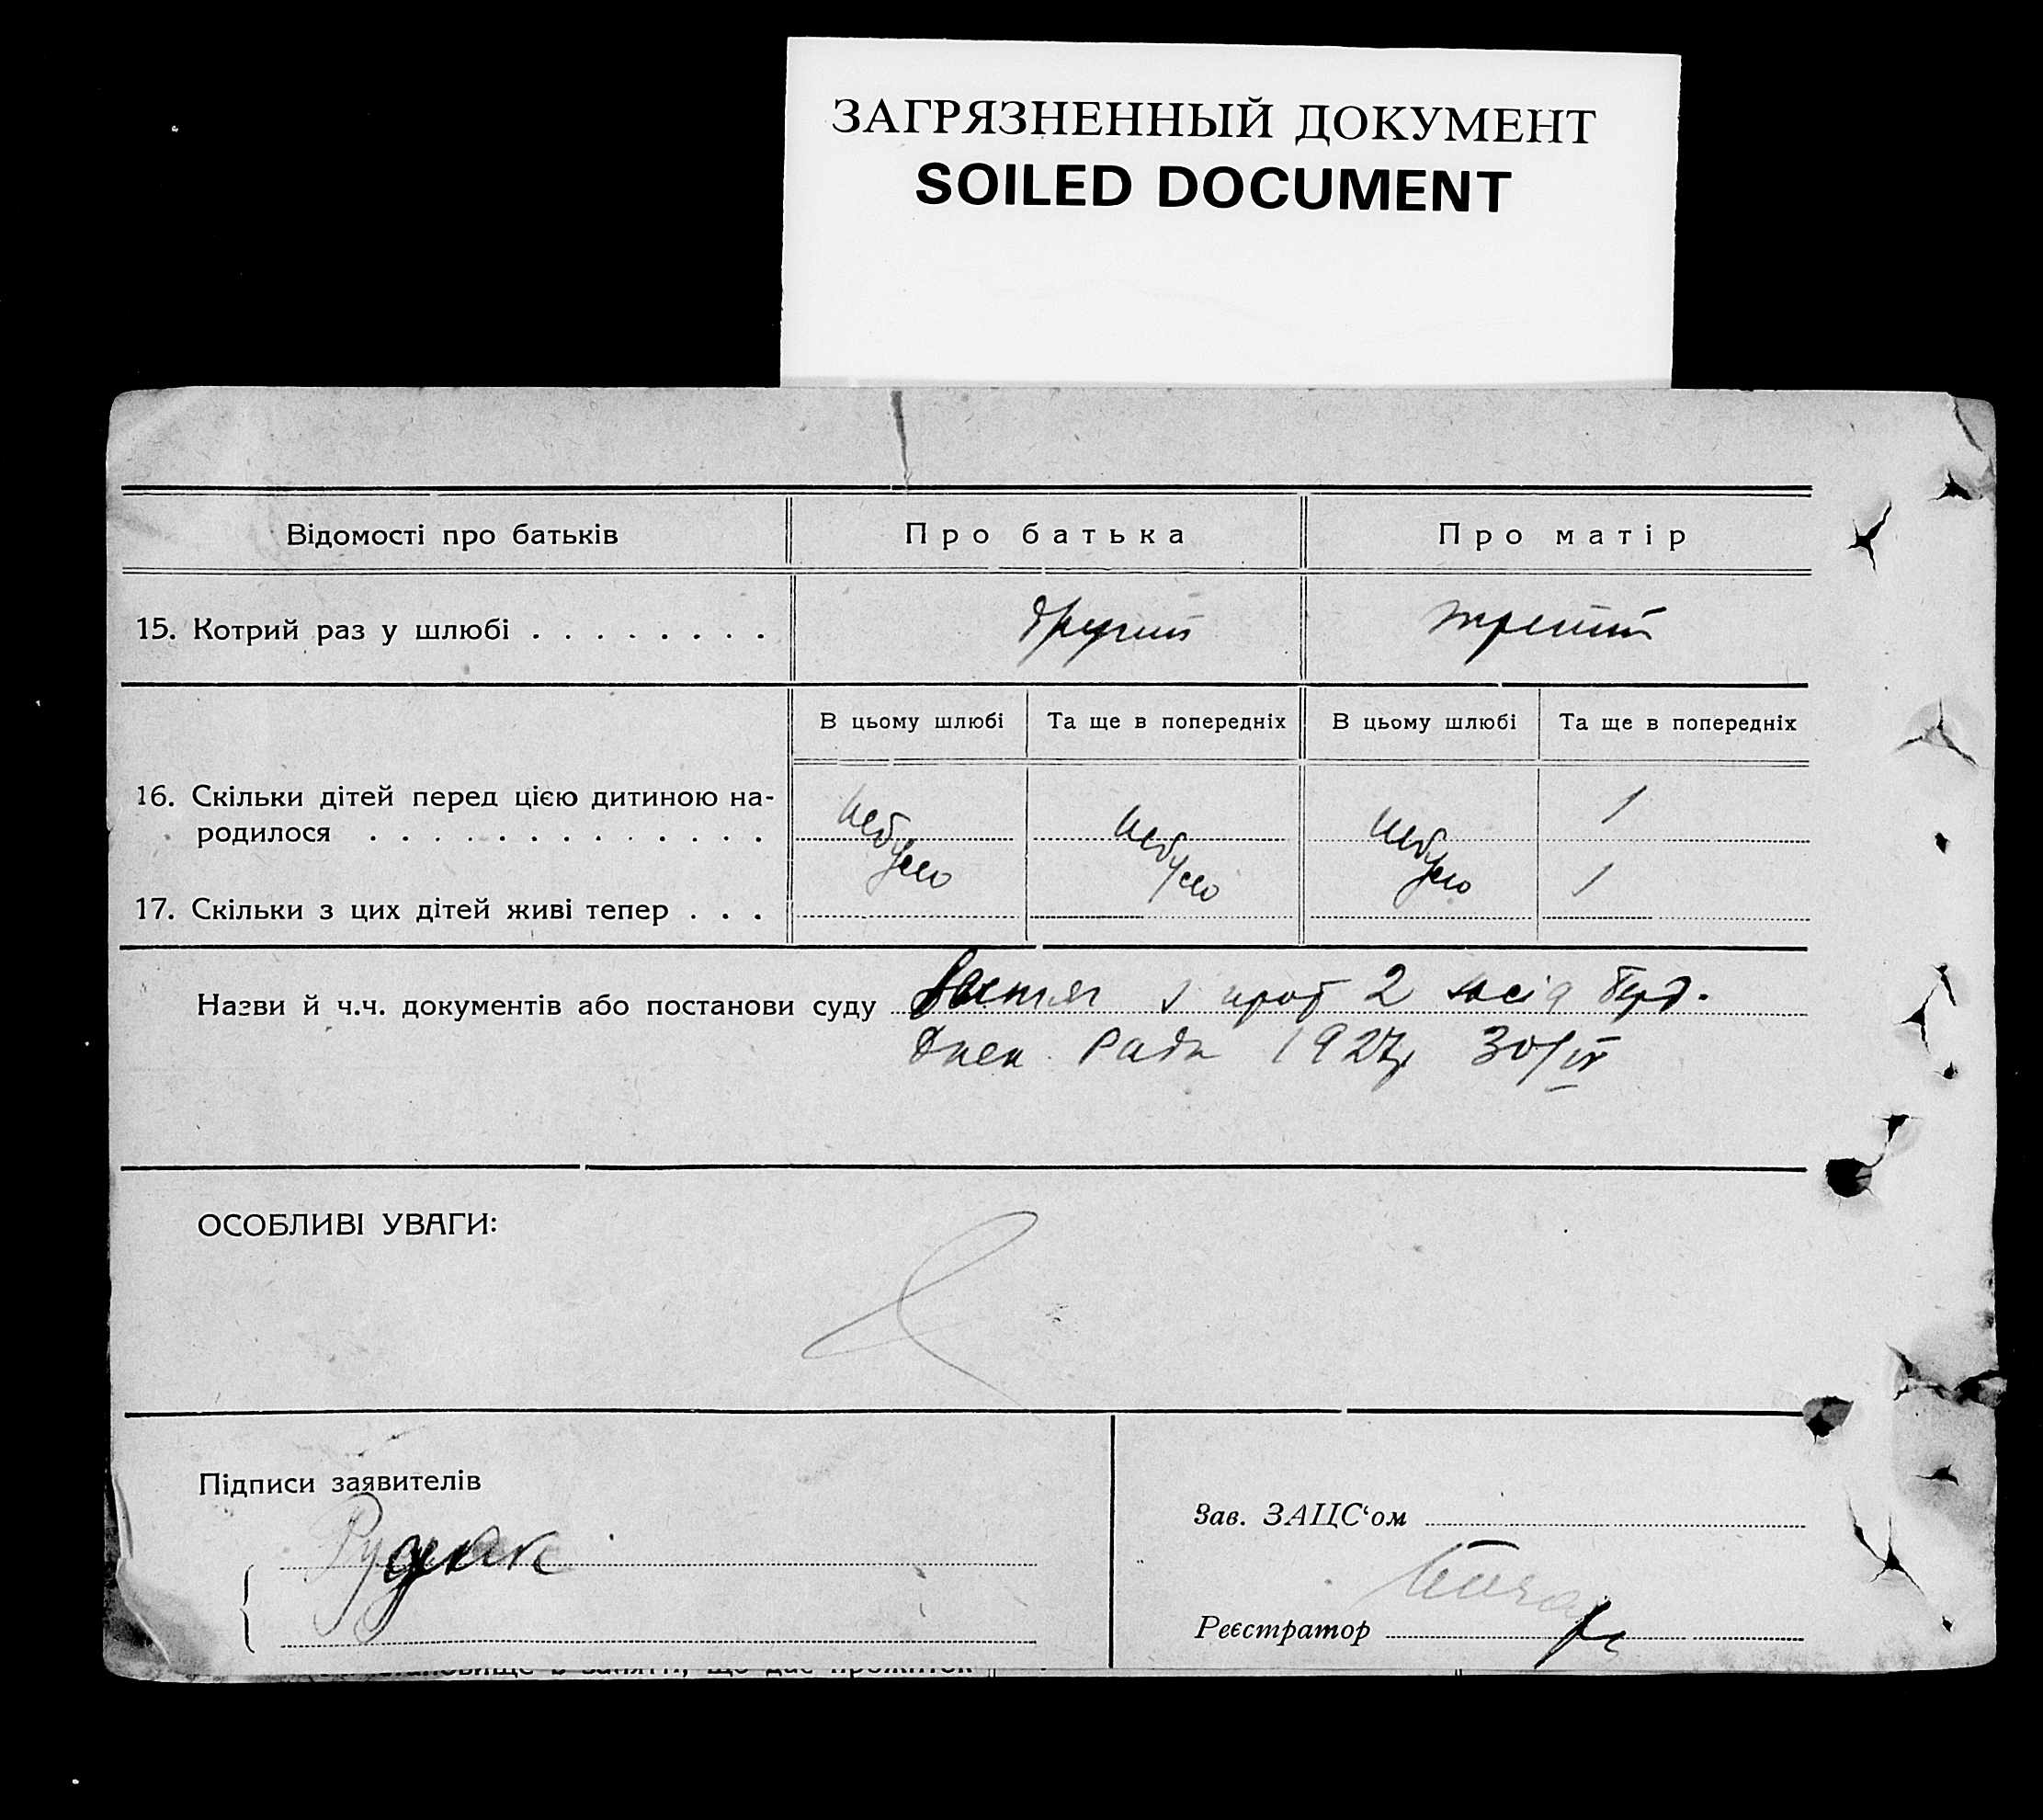 ЗАГРЯЗНЕННЫЙ ДОКУМЕНТ
SOILED DOCUMENT
Відомості про батьків Про батька Про матір
15. Котрий раз у шлюбі . . . . . . . . другий третий
В цьому шлюбі Та ще в попередніх В цьому шлюбі Та ще в попередніх
16. Скільки дітей перед цією дитиною на-
родилося . . . . . . . . . . . . . небуло небуло небуло 1
17. Скільки з цих дітей живі тепер . . . 1
Назви й ч.ч. документів або постанови суду Витяг з прот 2 засід
Ради 1927р 30/IV
ОСОБЛИВІ УВАГИ:
Підписи заявителів
Рудяк
Зав. ЗАЦС‘ом
Реєстратор
становище в занятті, що дає прожиток